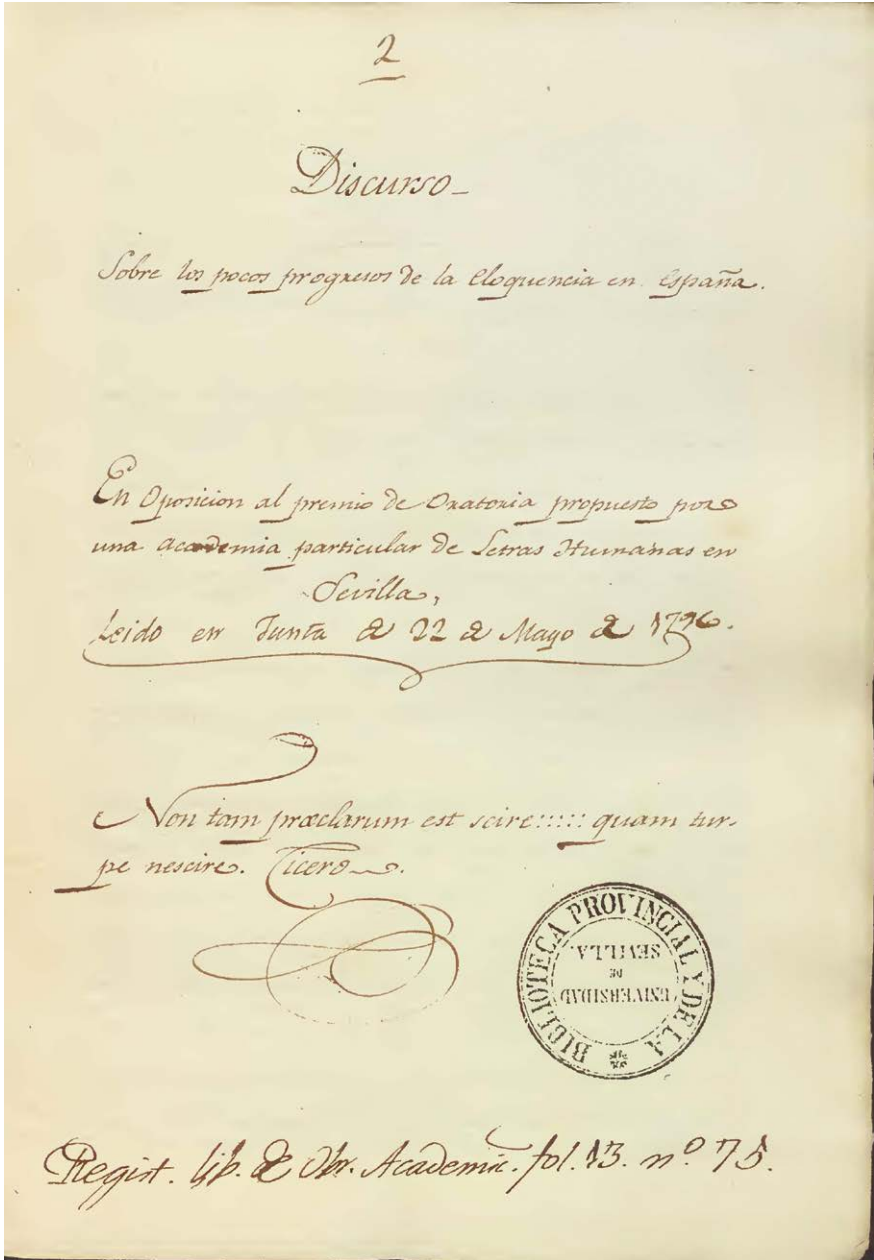 2
Discurso
Sobre los pocos progresos de la Eloquencia en España.
En Oposicion al premio de Oratoria propuesto por
una academia particular de Letras Humanas en
Sevilla,
Leido en Junta de 22 de Mayo de 1796.
Non tam præclarum est scire::::: quam tur-
pe nescire. Cicero.
BIBLIOTECA PROVINCIAL Y DE LA
UNIVERSIDAD
DE
SEVILLA.
Regist. lib. de Obr. Academic. fol. 13. nº. 75.